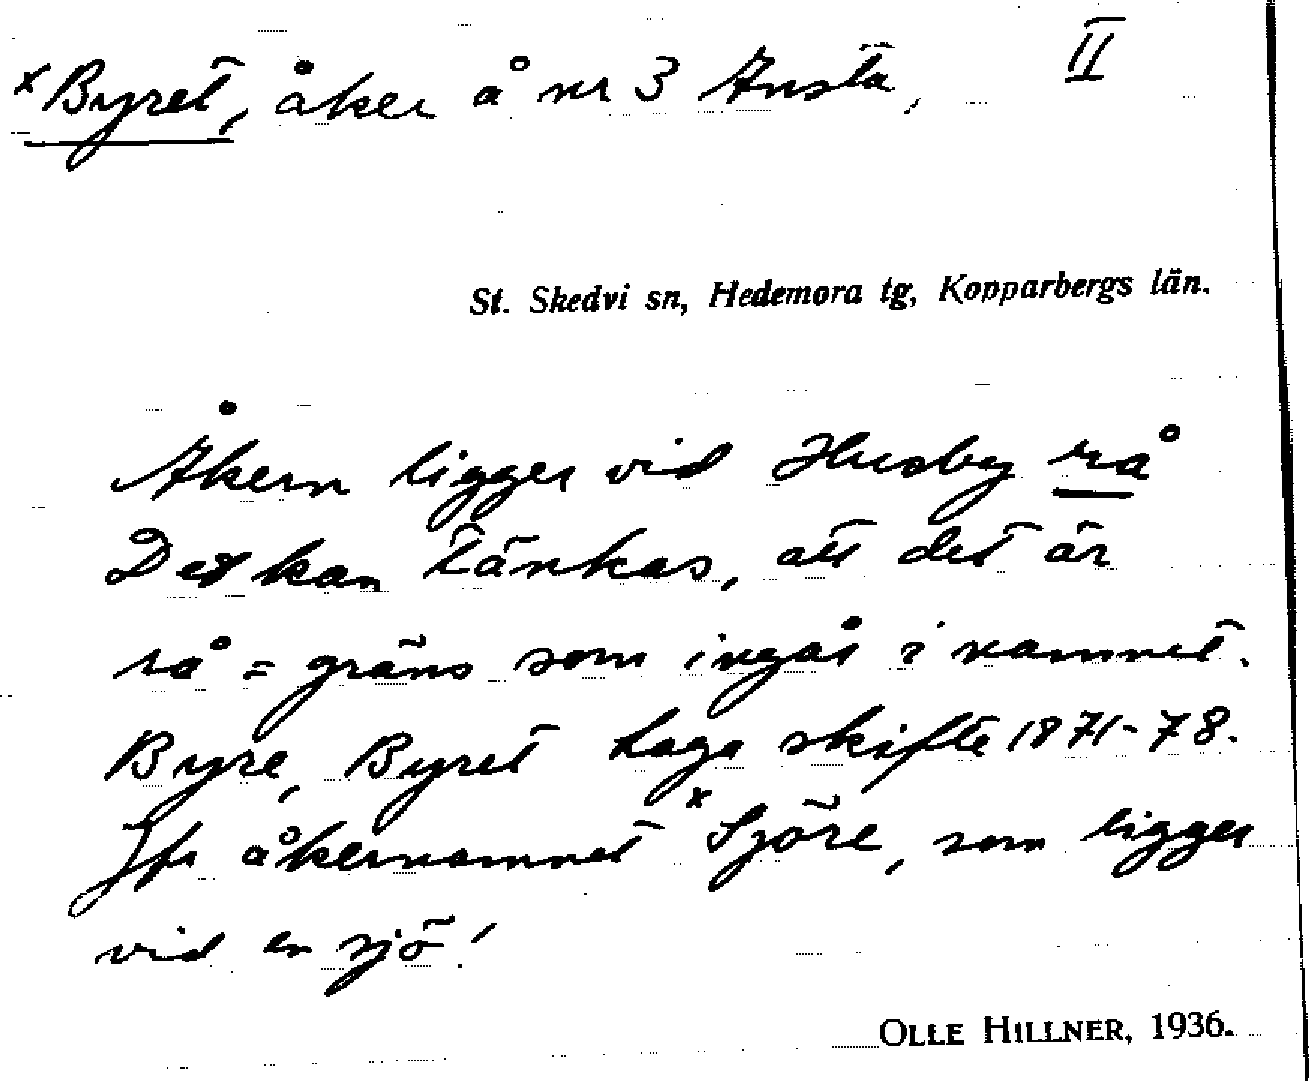 II
ˣByret, åker å nr 3 Ansta,
St. Skedvi sn, Hedemora tg, Kopparbergs län.
Åkern ligger vid Husby rå
Det kan tänkas, att det är
rå = gräns som ingår i namnet.
Byre, Byret Laga skifte 1871-78.
Jfr åkernamnet ˣSjöre, som ligger
vid en sjö!
OLLE HILLNER, 1936.